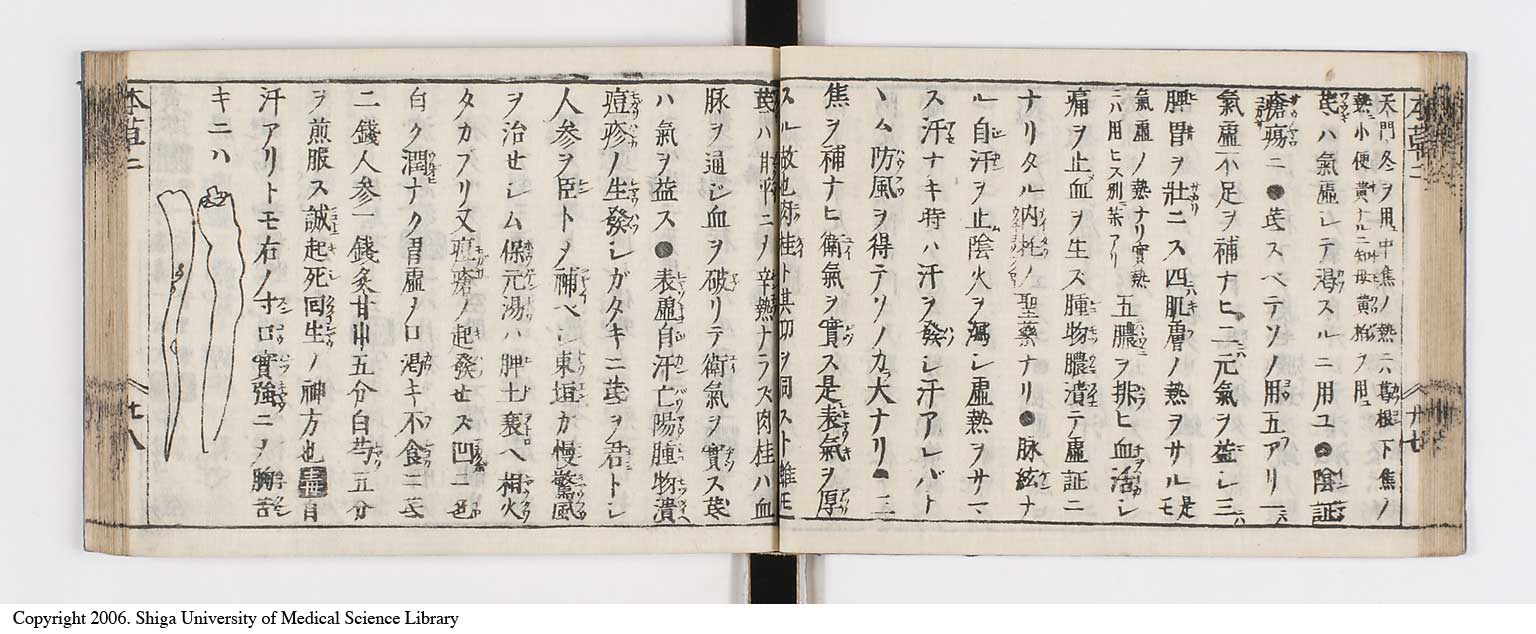 本草二
廿七
天門冬ヲ用ユ中焦ノ熱ニハ葛根下焦ノ
熱小便黄ナルニ知母黄柏ヲ用ユ
芪ハ氣虚シテ渇スルニ用ユ●陰証
瘡瘍ニ●芪スベテソノ用五アリ一ハ
氣虚不足ヲ補ナヒ二ハ元氣ヲ益シ三ハ
脾胃ヲ壯ニス四ハ肌層ノ熱ヲサルモ是
氣虚ノ熱ナリ實熱
ニハ用ヒス別ニ茶アリ
五膿ヲ排ヒ血活シ
痛ヲ止血ヲ生ス腫物膿潰テ虚証ニ
ナリタル内托ノ聖藥ナリ●脉絃ナ
ル自汗ヲ止陰火ヲ瀉シ虚熱ヲサマ
ス汗ナキ時ハ汗ヲ發シ汗アレバト
ヽム防風ヲ得テソノ力大ナリ●三
焦ヲ補ナヒ衛氣ヲ實ス是表氣ヲ厚
スル故也肉桂ト其切ヲ同スト雖モ
芪ハ甘平ニメ辛熱ナラズ肉桂ハ血
脉ヲ通ジ血ヲ破リテ衛氣ヲ實ス芪
ハ氣ヲ益ス●表虚自汗亡陽腫物潰
痘疹ノ生發シガタキニ芪ヲ君トシ
人参ヲ臣トメ補ベシ東垣ガ慢驚風
ヲ治セシム保元湯ハ脾土衰ヘ相火
タカブリ又痘瘡ノ起發セス凹ニ色
白ク潤ナク胃虚ノ口渇キ不食ニ芪
二錢人参一錢炙甘艸五分白芍五分
ヲ煎服ス誠起死回生ノ神方也
汗アリトモ右ノ寸口實強ニメ胸苦
キニハ
本草二
廿八
Copyright 2006. Shiga University of Medical Science Library